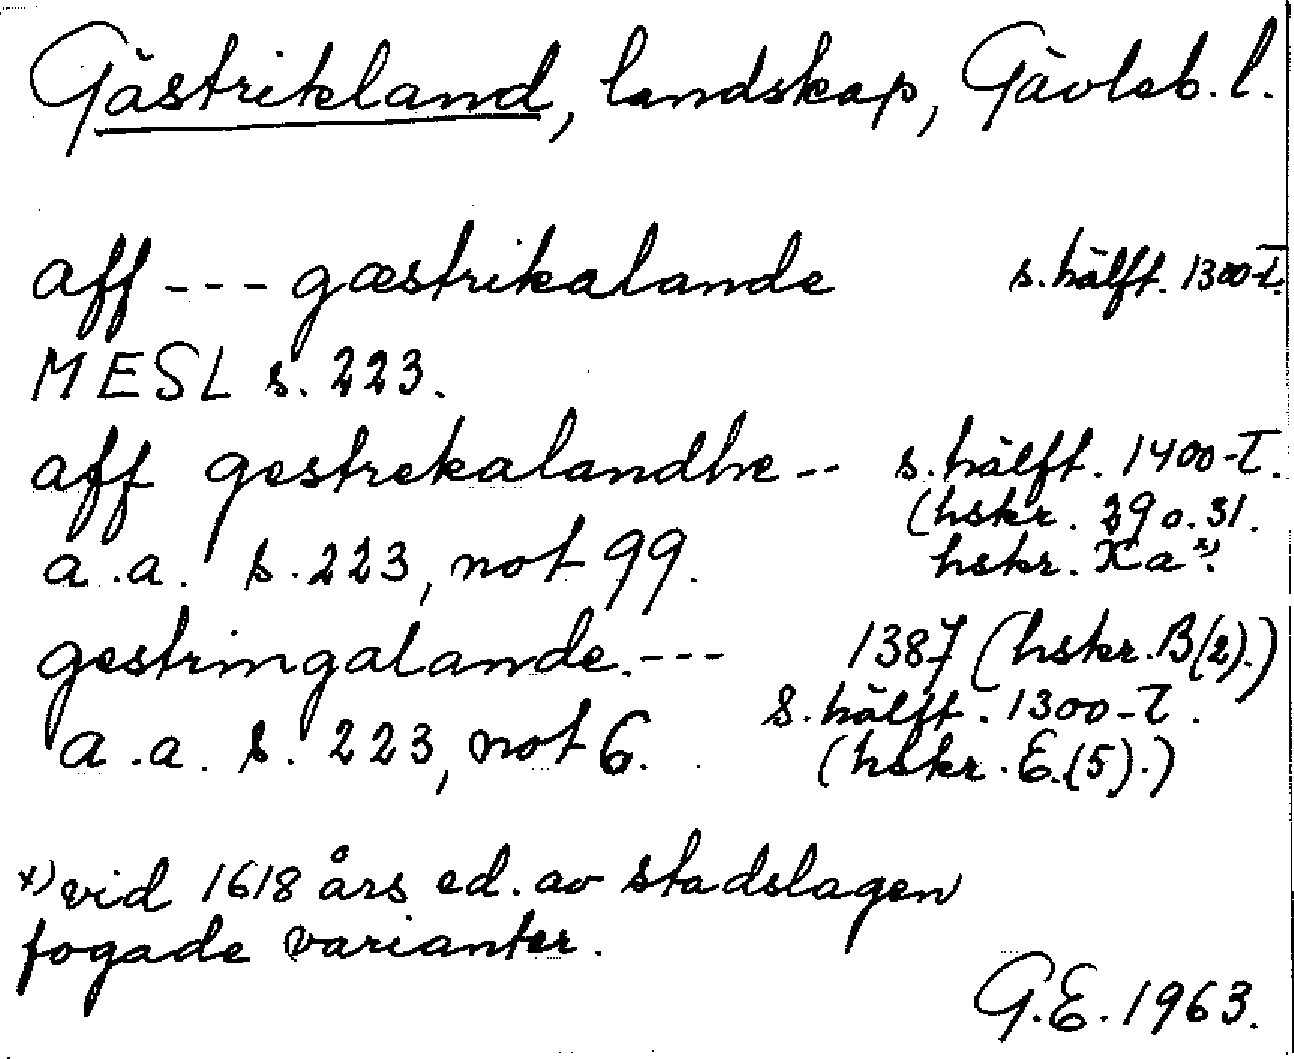 Gästrikland, landskap, Gävleb. l.
aff --- gæstrikalande s. hälft. 1300-t.
MESL s. 223.
aff gestrekalandhe -- s. hälft. 1400-t.
(hskr. 29 o. 31.
a.a. s. 223, not 99. hskr. Xa x).
gestringalande. --- 1387 (hskr. B(2).)
s. hälft. 1300-t.
a.a. s. 223, not 6. (hskr. E.(5).)
x) vid 1618 års ed. av stadslagen
fogade varianter.
G.E. 1963.